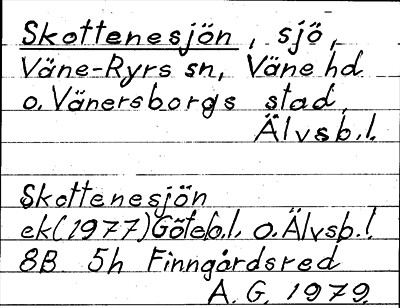 Skottenesjön, sjö,
Väne-Ryrs sn, Väne hd
o. Vänersborgs stad,
Älvsb. l.
Skottenesjön
ek (1977) Göteb. l. o. Älvsb. l.
8B 5h Finngårdsred
A. G. 1979.